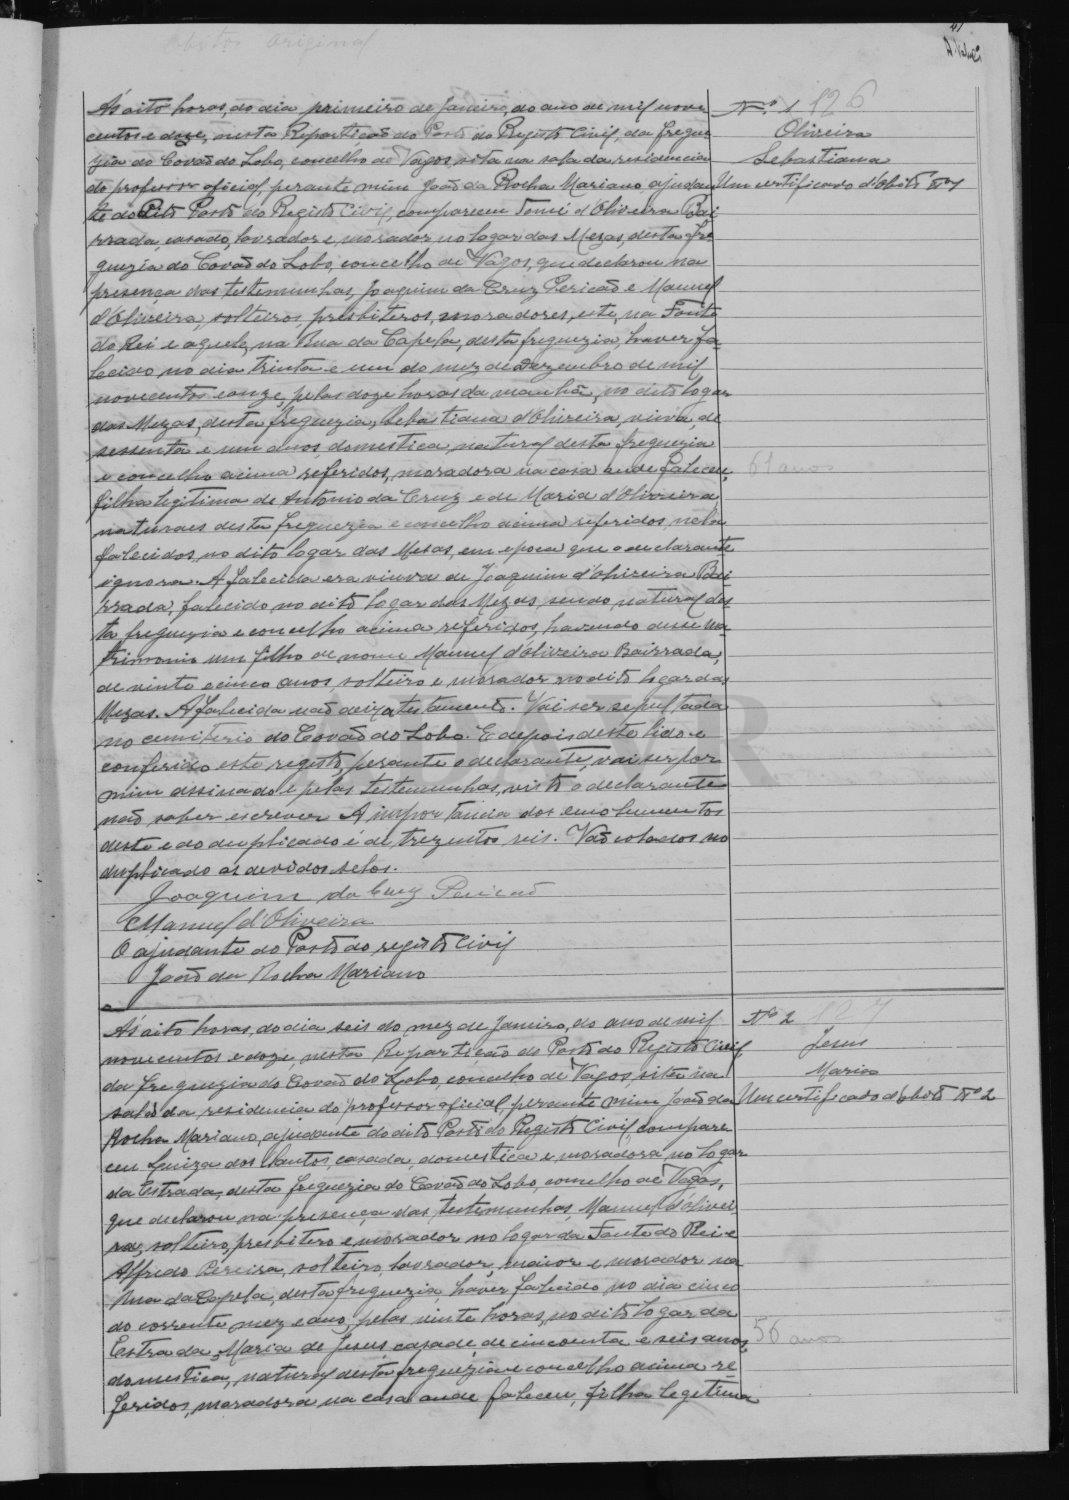 Obitos Original
Nº 1 126
Oliveira
Sebastiana
Um certificado d'obito nº 1
Ás oito horas, do dia primeiro de Janeiro, do ano de mil nove
centos e doze, nesta Repartição do Posto do Registo Civil, da fregue
zia do Covão do Lobo, concelho de Vagos, sita na sala da residencia
do professor oficial, perante mim João da Rocha Mariano, ajudan
te do dito Posto do Registo Civil, compareceu Tomé d'Oliveira Bai
rrada, casado, lavrador e morador no logar das Mezas, desta fre
guezia do Covão do Lobo, concelho de Vagos, que declarou na
presença das testemunhas, Joaquim da Cruz Pericão e Manuel
d'Oliveira, solteiros, presbiteros, moradores, este, na Fonte
do Rei e aquele, na Rua da Capela, desta freguezia, haver fa-
lecido no dia trinta e um do mez de Dezembro de mil
novecentos e onze, pelas doze horas da manhã, no dito logar
das Mezas, desta freguezia, Sebastiana d'Oliveira, viuva, de
sessenta e um anos, domestica, natural desta freguezia
e concelho acima referidos, moradora na casa onde faleceu,
61 anos
filha legitima de Antonio da Cruz e de Maria d'Oliveira,
naturaes desta freguezia e concelho acima referidos, nela
falecidos, no dito logar das Mezas, em epoca que o declarante
ignora. A falecida era viuva de Joaquim d'Oliveira Bai
rrada, falecido no dito logar das Mezas, sendo natural des
ta freguezia e concelho acima referidos, havendo desse ma-
trimonio um filho de nome Manuel d'Oliveira Bairrada,
de vinte e cinco anos, solteiro e morador no dito logar das
Mezas. A falecida não deixa testamento. Vai ser sepultada
no cemiterio do Covão do Lobo. E depois deste lido e
conferido este registo, perante o declarante, vai ser por
mim assinado e pelas testemunhas, visto o declarante
não saber escrever. A importancia dos emolumentos
deste e do duplicado é de trezentos reis. Vão colados no
duplicado os devidos selos.
Joaquim da Cruz Pericão
Manuel d'Oliveira
O ajudante do Posto do registo Civil
João da Rocha Mariano
Nº 2 127
Jesus
Maria
Um certificado d'obito nº 2
Ás oito horas, do dia seis do mez de Janeiro, do ano de mil
novecentos e doze, nesta Repartição do Posto do Registo Civil
da freguezia do Covão do Lobo, concelho de Vagos, sita na
sala da residencia do professor oficial, perante mim João da
Rocha Mariano, ajudante do dito Posto do Registo Civil, compare
ceu Luiza dos Santos, casada, domestica e moradora no logar
da Estrada, desta freguezia do Covão do Lobo, concelho de Vagos,
que declarou na presença das testemunhas, Manuel d'Olivei
ra, solteiro, presbitero e morador no logar da Fonte do Rei e
Alfredo Pereira, solteiro, lavrador, maior e morador na
Rua da Capela, desta freguezia, haver falecido no dia cinco
do corrente mez e ano, pelas vinte horas, no dito logar da
Estrada, Maria de Jesus, casada, de cincoenta e seis anos,
56 anos
domestica, natural desta freguezia e concelho acima re
feridos, moradora na casa onde faleceu, filha legitima